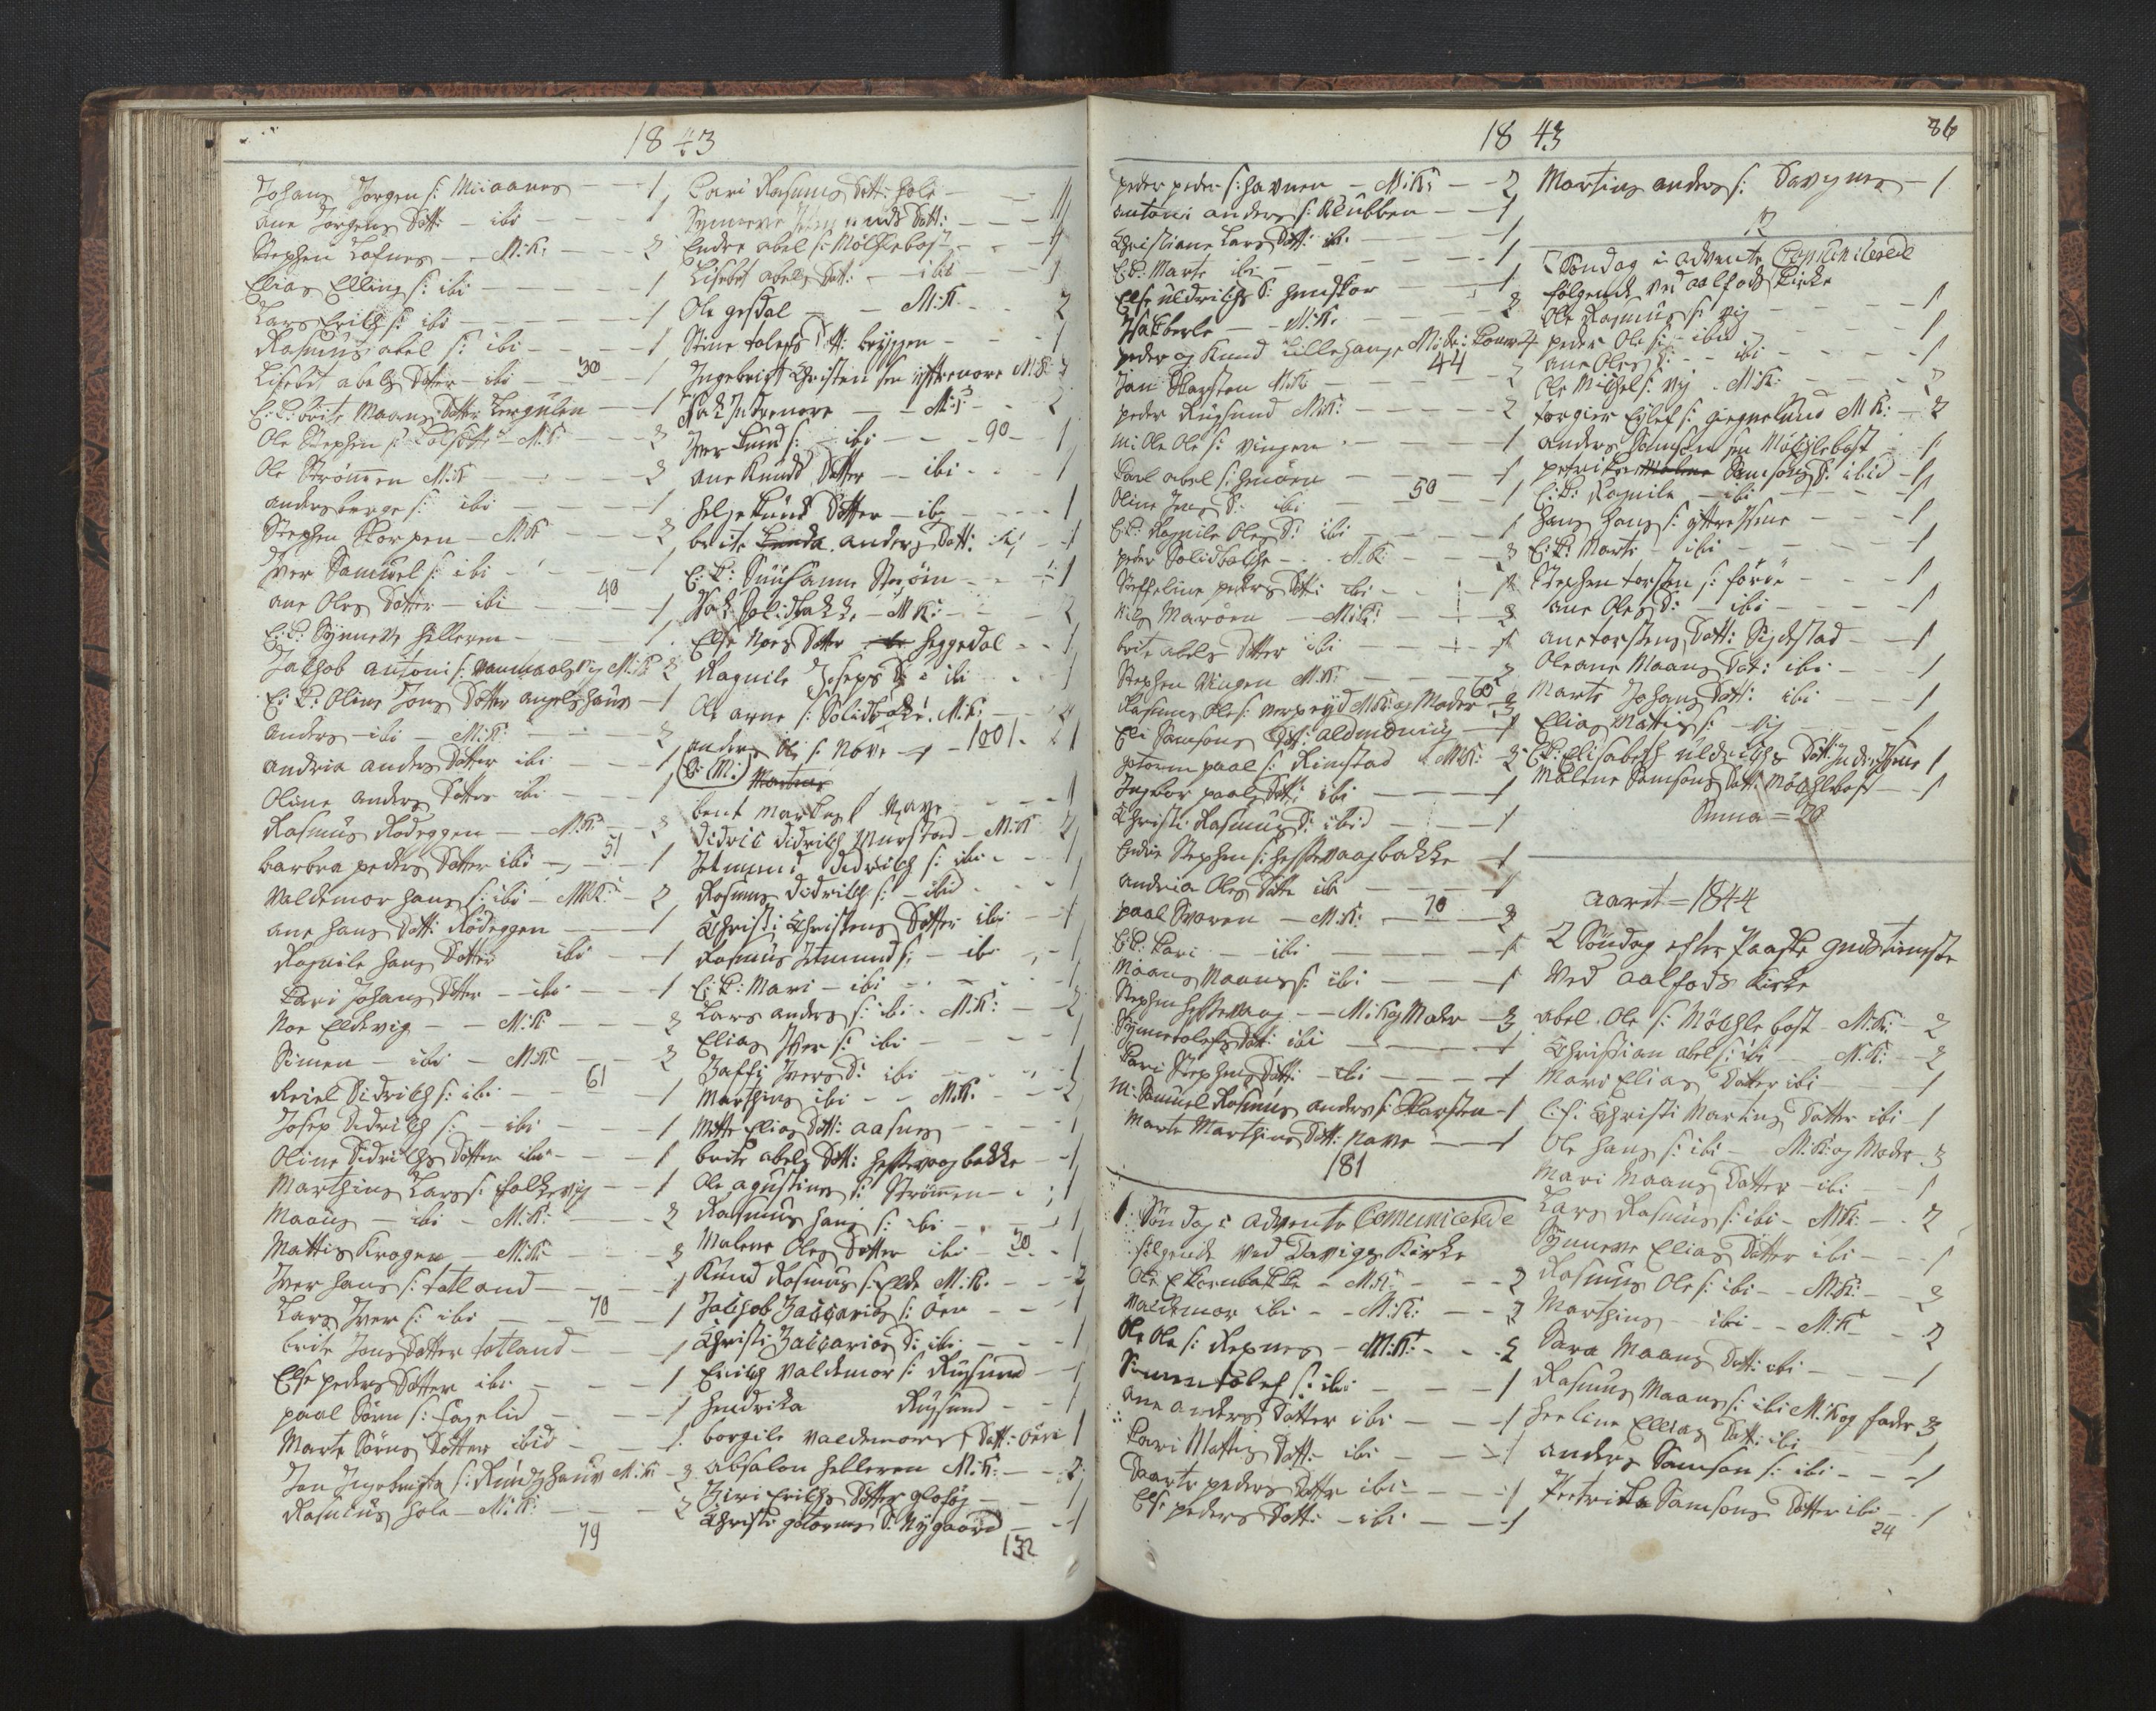 1843
Johans Jørgen s: Miiaanes - - 1
ane Jørgens Dott: - ibi - - - 1
Stephen Løfnes - - M:K: - - 2
Elias Elling s: ibi - - - 1
Lars Erich s: ibi - - - 1
Rasmus abel s: ibi - - - 1
Lisebet abels Dotter - ibi - 30 - 1
E: K: brite Maans Dotter - 1
Ole Stephen s: - M:K - - 2
Ole Strømmen M:K - - - 2
anders berge s: ibi - - - 1
Stephen Skorpen - M:K - - - 2
Iver Samuel s: ibi - - - 1
ane Oles Dotter - ibi - 40 - 1
E: K: Synneve Helleren - - - 1
Jachob antoni s: M:K 2
E: K: Oline Jons Dotter angelshaun - 1
anders - ibi - M:K: - - 2
andria anders Dotter ibi - - - 1
Oline anders Dotter ibi - - - 1
Rasmus Rødeggen - - M:K: - 2
barbra peders Dotter ibi - 51 - 1
Valdemor hans s: ibi - M:K: - 2
ane hans Dott: Rødeggen - - 1
Ragnile hans Dotter ibi - - 1
Kari Johans Dotter - ibi - - - 1
Noe Eldevig - - M:K: - - - 2
Simen - ibi - M:K - - 2
Reiel Didrich s: ibi - - 61 - 1
Josep Didrich s: - ibi - - - 1
Oline Didrichs Dotter ibi - - - 1
Marthines Lars s: - - 1
Maans - ibi - M:K: - - - 2
Mattis Krogen - M:K: - - - 2
Iver hans s: totland - - - 1
Lars Iver s: ibi - - 70 - 1
brite Jons Dotter totland - - - 1
Else peders Dotter ibi - - - 1
paal Sørn s: fagelid - - - 1
Marte Sørns Dotter ibid - - - 1
Jon Ingebrigt s: M:K - 2
Rasmus hole - M:K: - - - 2
79
Kari Rasmus Dott: hole - - - 1
Synneve Dott: - - - 1
Endre abel s: Mølchlebost - - - 1
Lisebet abels Dot: - ibi - - 1
Ole gesdal - - M:K - - 2
Stine tolefs Dott: bryggen - - - 1
Ingebrigt Christensen yttrenore M:K: 2
Isak Indrenore - - M:K - - 2
Iver Knud s: - ibi - - 90 - 1
ane Knuds Dotter - ibi - - - 1
Helje Knuds Dotter - ibi - - - 1
brite anders Dott: ibi - 1
E: K: Susanne Strøm - - - 1
Isak Solibakke - M:K: - - - 2
Else Noes Dotter heggedal - - 1
Ragnile Joseps D: ibi - - 1
Ole arne s: Solibakke M:K: - - 2
anders Ole s: Nøve - 1 - 1001 - 1
bent Markus s: Nave - - - 1
Didric Didrich Murstad - M:K 2
Jetmund Didrich s: ibi - - 1
Rasmus Didrich s: - ibid - - - 1
Christi Christens Dotter ibi - - 1
Rasmus Jetmund s: - ibi - - 1
E: K: Mari - ibi - - - - 1
Lars anders s: ibi - M:K: - - 2
Elias Iver s: ibi - - - 1
Zaffi Ivers D: ibi - - - 1
Marthines ibi - - M:K: - - 2
Mette Elias Dott: aasnes - - - 1
brite abels Dott: hessevaagbakke - 1
Ole agustinus s: Strømmen - - 1
Rasmus hans s: ibi - - - 1
Malene Oles Dotter ibi - 20 - 1
Knud Rasmus s: Elde M:K: - - 2
Jachob Zaccarias s: Øen - - 1
Christi Zaccarias D: ibi - - - 1
Erich Valdemor s: Rugsund - 1
hendrika Rugsund - - 1
borgile Valdemors Dott: Øen 1
absalon helleren M:K: - - 2
Ziri Erichs Dotter - - 1
Christi gotorms D: Nygaard - - 1
132
1843
86
peder peder s: havnen - M:K: - - 2
antoni anders s: Klubben - - 1
Christiane Lars Dott: ibi - - - 1
E: K: Marte ibi - - - - 1
Else uldrichs D: hundskor - - 1
Isak berle - - M:K: - - - 2
peder og Knud Lillehange M:K: 4
44
Jan Skarsten M:K: - - - 2
peder Rugsund M:K: - - - 2
Nille Ole s: Vingen - - - 1
Karl abel s: - - - 1
Oline Ivers D: ibi - 50 - 1
E: K: Ragnile Oles D: ibi - - - 1
peder Solibakke - - M:K: - - 2
Steffeline peders Dott: ibi - - - 1
Nils Marøen - M:K: - - 2
brite abels Dotter ibi - - - 1
Stephen Vingen M:K: - - - 2
60
Rasmus Ole s: M:K: og Moder - 3
Eli Samsons Dott: - 1
gotorm paal s: Rimstad M:K: 2
Ingebor paals Dott: ibi - - - 1
Christi Rasmus D: ibid - - - 1
Endre Stephen s: hessevaagbakke - 1
andria Oles Dotte ibi - - - 1
paal Svoren - M:K: - 70 - 2
E: K: Kari - ibi - - - 1
Maans Maans s: ibi - - - 1
Stephen hessevaag - - M:K og Moder - 3
Synne tolefs Dott: ibi - - - 1
Kari Stephens Dott: - ibi - - - 1
m: Samuel Rasmus anders s: Skarsten - 1
Marte Marthins Dott: Nave - - 1
181
1 Søndag i advente Comunicerede
følgende Ved Davigs Kirke
Ole Ekornbakke - M:K: - - - 2
Valdemor ibi - - M:K: - - 2
Ole Ole s: Repnes - M:K: - - 2
Simen tolef s: ibi - - - 1
ane anders Dotter ibi - - - 1
Kari Mattis Dott: - ibi - - - 1
Daarte peders Dotter ibi - - - 1
Else peders Dott: - ibi - - - 1
Martines anders s: Davignes - 1
12
2 Søndag i advente Comunicerede
følgende ved aalfods Kirke
Ole Rasmus s: vig - - - 1
peder Ole s: - ibid - - - 1
ane Oles D: - - ibi - - - 1
Ole Michel s: vig - M:K: - - 2
torgier Eilef s: giegnalund M:K: - 2
anders Samson sen Mølchlebost - 1
petrike Samsons D: ibid - 1
E: K: Ragnile - ibi - - - 1
hans hans s: yttrehuus - - 1
E: K: Marte - ibi - - - 1
Stephen torsten s: førde - - - 1
ane Oles D: - ibi - - - 1
ane torstens Dott: Sigdestad - - 1
Oleane Maans Dot: ibi - - 1
Marte Johans Dott: ibi - - 1
Elias Mattis s: - vig - - - 1
E: K: Elisabeth uldrichs Dott: Indrehuus 1
Malene Samsons Dott: Mølchlebost - 1
Suma = 20
aaret = 1844
2 Søndag efter Paaske gudstieneste
Ved aalfods Kirke
abel Ole s: Mølchlebost - M:K: - 2
Christian abel s: ibi - M:K: - 2
Mari Elias Dotter ibi - - 1
E: K: Christi Martins Dotter ibi - 1
Ole hans s: ibi - M:K: og Moder - 3
Mari Maans Dotter - ibi - - 1
Lars Rasmus s: ibi - M:K: - - 2
Synneve Elias Dotter ibi - - - 1
Rasmus Ole s: ibi - - M:K: - - 2
Marthines - ibi - - M:K - - 2
Sara Maans Dott: ibi - - - 1
Rasmus Maans s: ibi M:K og fader 3
heeline Ellias Dott: ibi - - 1
anders Samson s: ibi - - - 1
Petrika Samsons Dotter ibi - - 1
24